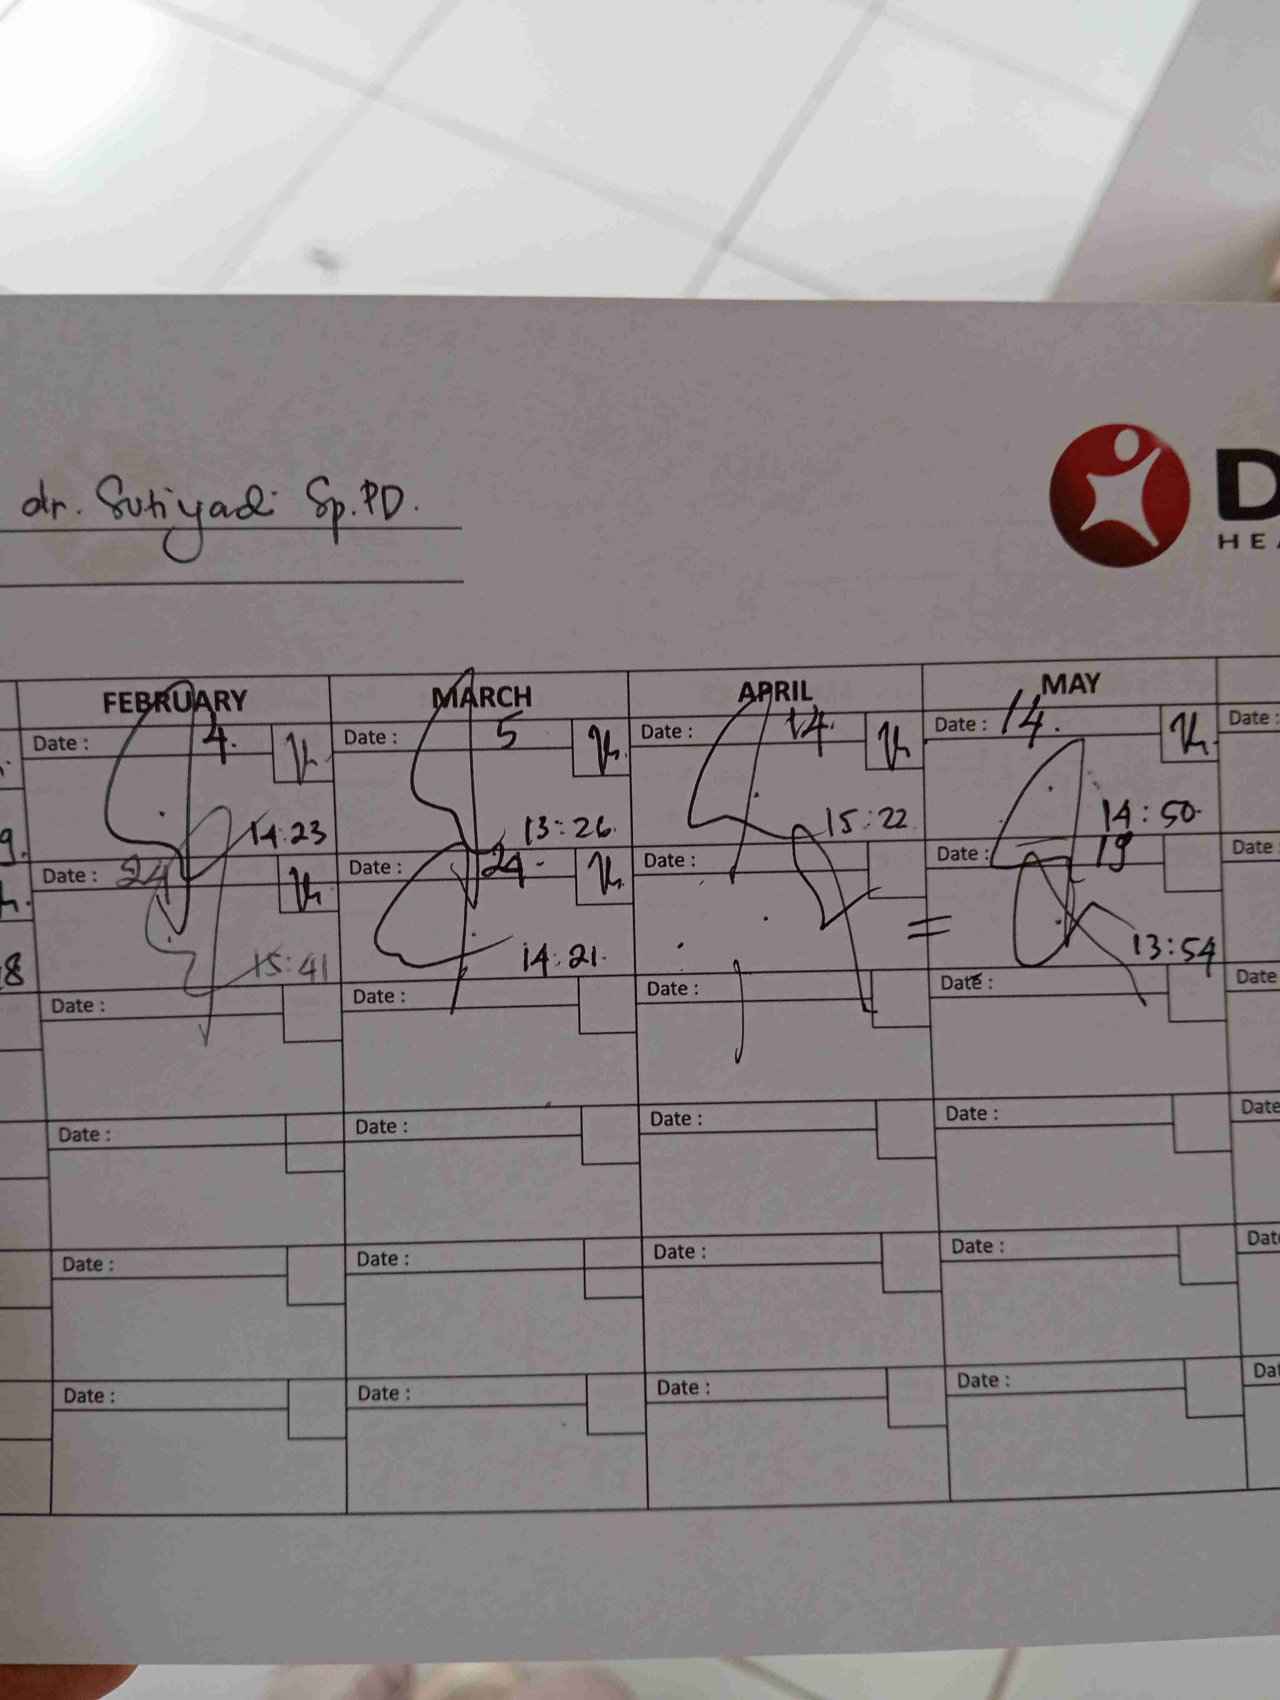 dr. Sutiyadi Sp.PD.
D
HEA
FEBRUARY MARCH APRIL MAY
Date : 4. Date : 5 Date : 14. Date : 14. Date :
14:23 13:26. 15:22 14:50.
9.
Date : 24 Date : 24. Date : Date : 19 Date
15:41 14:21. = 13:54
8
Date : Date : Date : Date : Date
Date : Date : Date : Date : Date
Date : Date : Date : Date : Dat
Date : Date : Date : Date : Dat